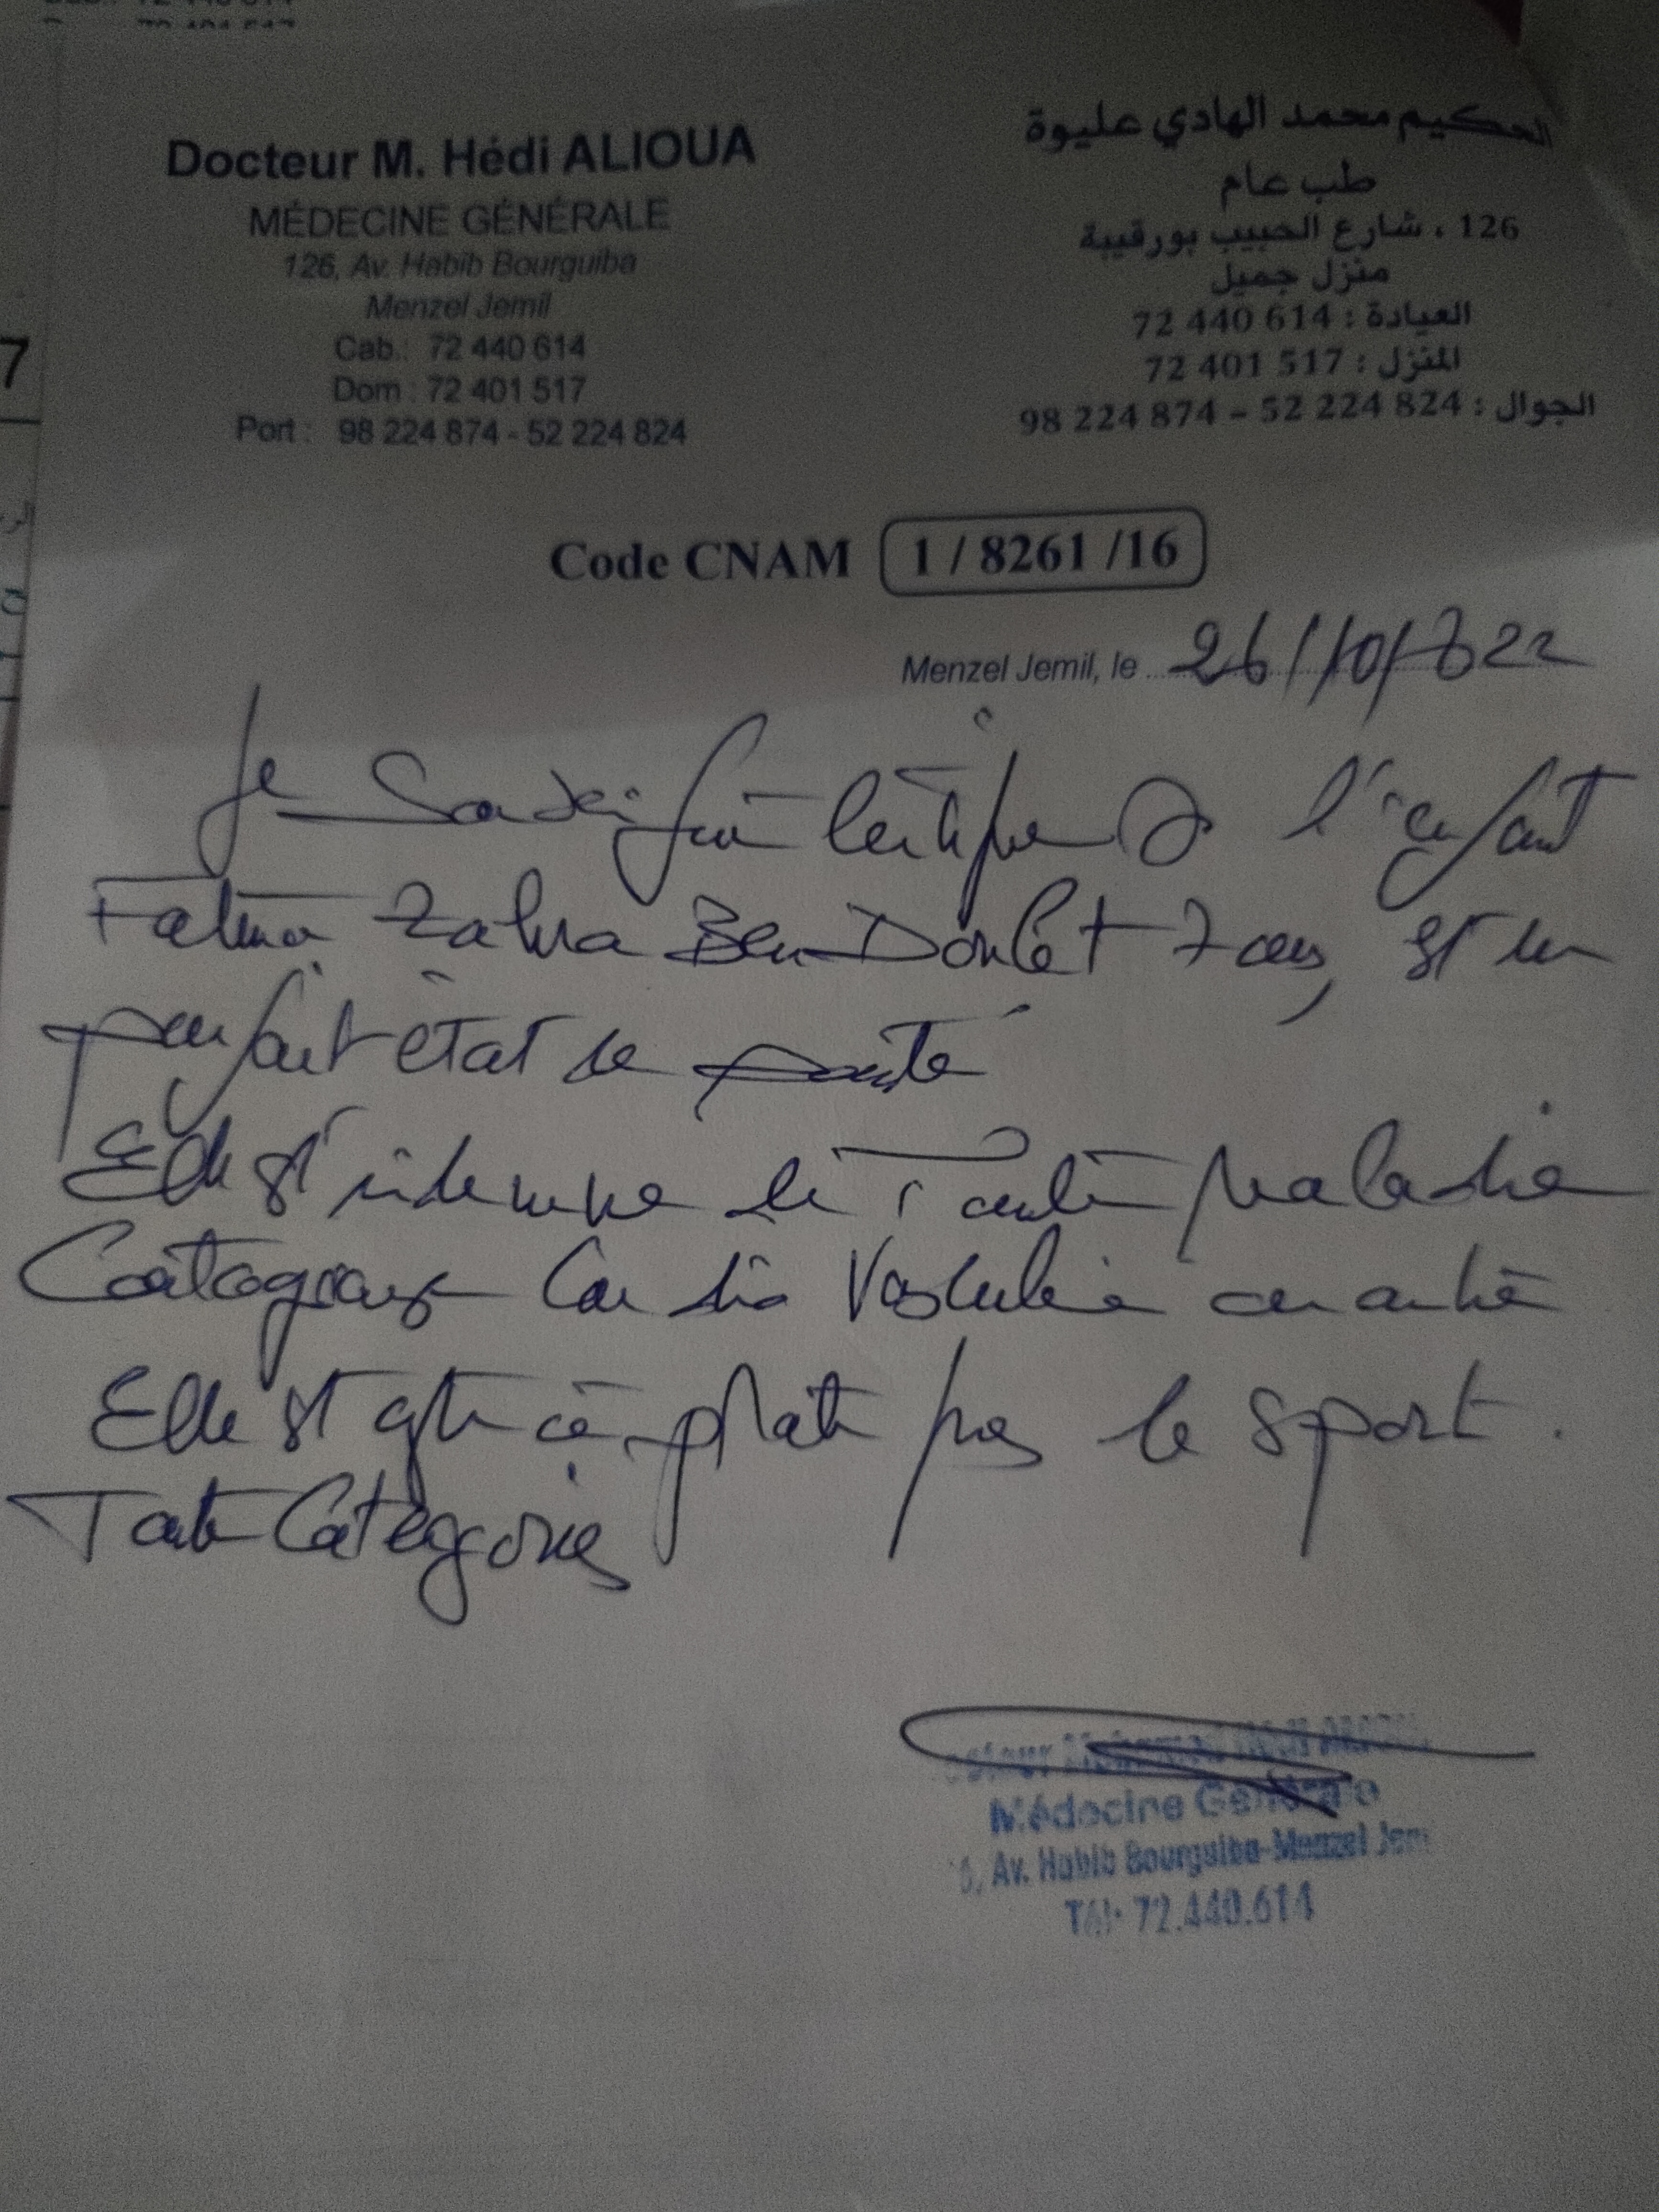 Docteur M. Hédi ALIOUA
MÉDECINE GÉNÉRALE
126, Av. Habib Bourguiba
Menzel Jemil
Cab.: 72 440 614
Dom : 72 401 517
Port : 98 224 874 - 52 224 824
الحكيم محمد الهادي عليوة
طب عام
126 ، شارع الحبيب بورقيبة
منزل جميل
العيادة : 614 440 72
المنزل : 517 401 72
الجوال : 824 224 52 - 874 224 98
Code CNAM 1 / 8261 /16
Menzel Jemil, le 26/10/2022
Je certifie l'enfant
Fatma Zahra Ben Doulet 7 ans, est en
parfait état de santé
Elle est indemne de toute maladie
Contagieuse Cardio Vasculaire
Elle est apte à le sport.
Toute Catégories
Médecine Générale
Av. Habib Bourguiba-Menzel Jem
Tél: 72.440.614